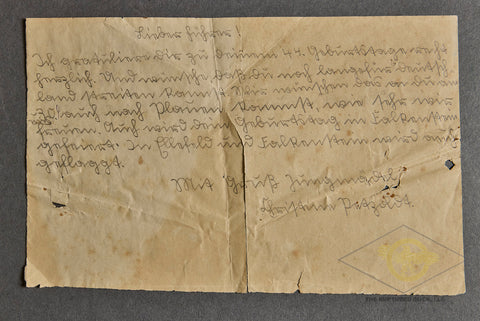 Lieber Führer!
Ich gratuliere dir zu deinem 44. Geburtstage recht
herzlich. Und wünsche daß du noch lange für Deutsch-
land streiten kannst. Wir wünschen das du am
auch nach Plauen kommst, wie sehr wir
freuen. Auch wird dein Geburtstag in Falkenstein
gefeiert. In Ellefeld und Falkenstein wird auch
geflaggt.
Mit Gruß Jungmädel
THE RUPTURED DUCK, LLC